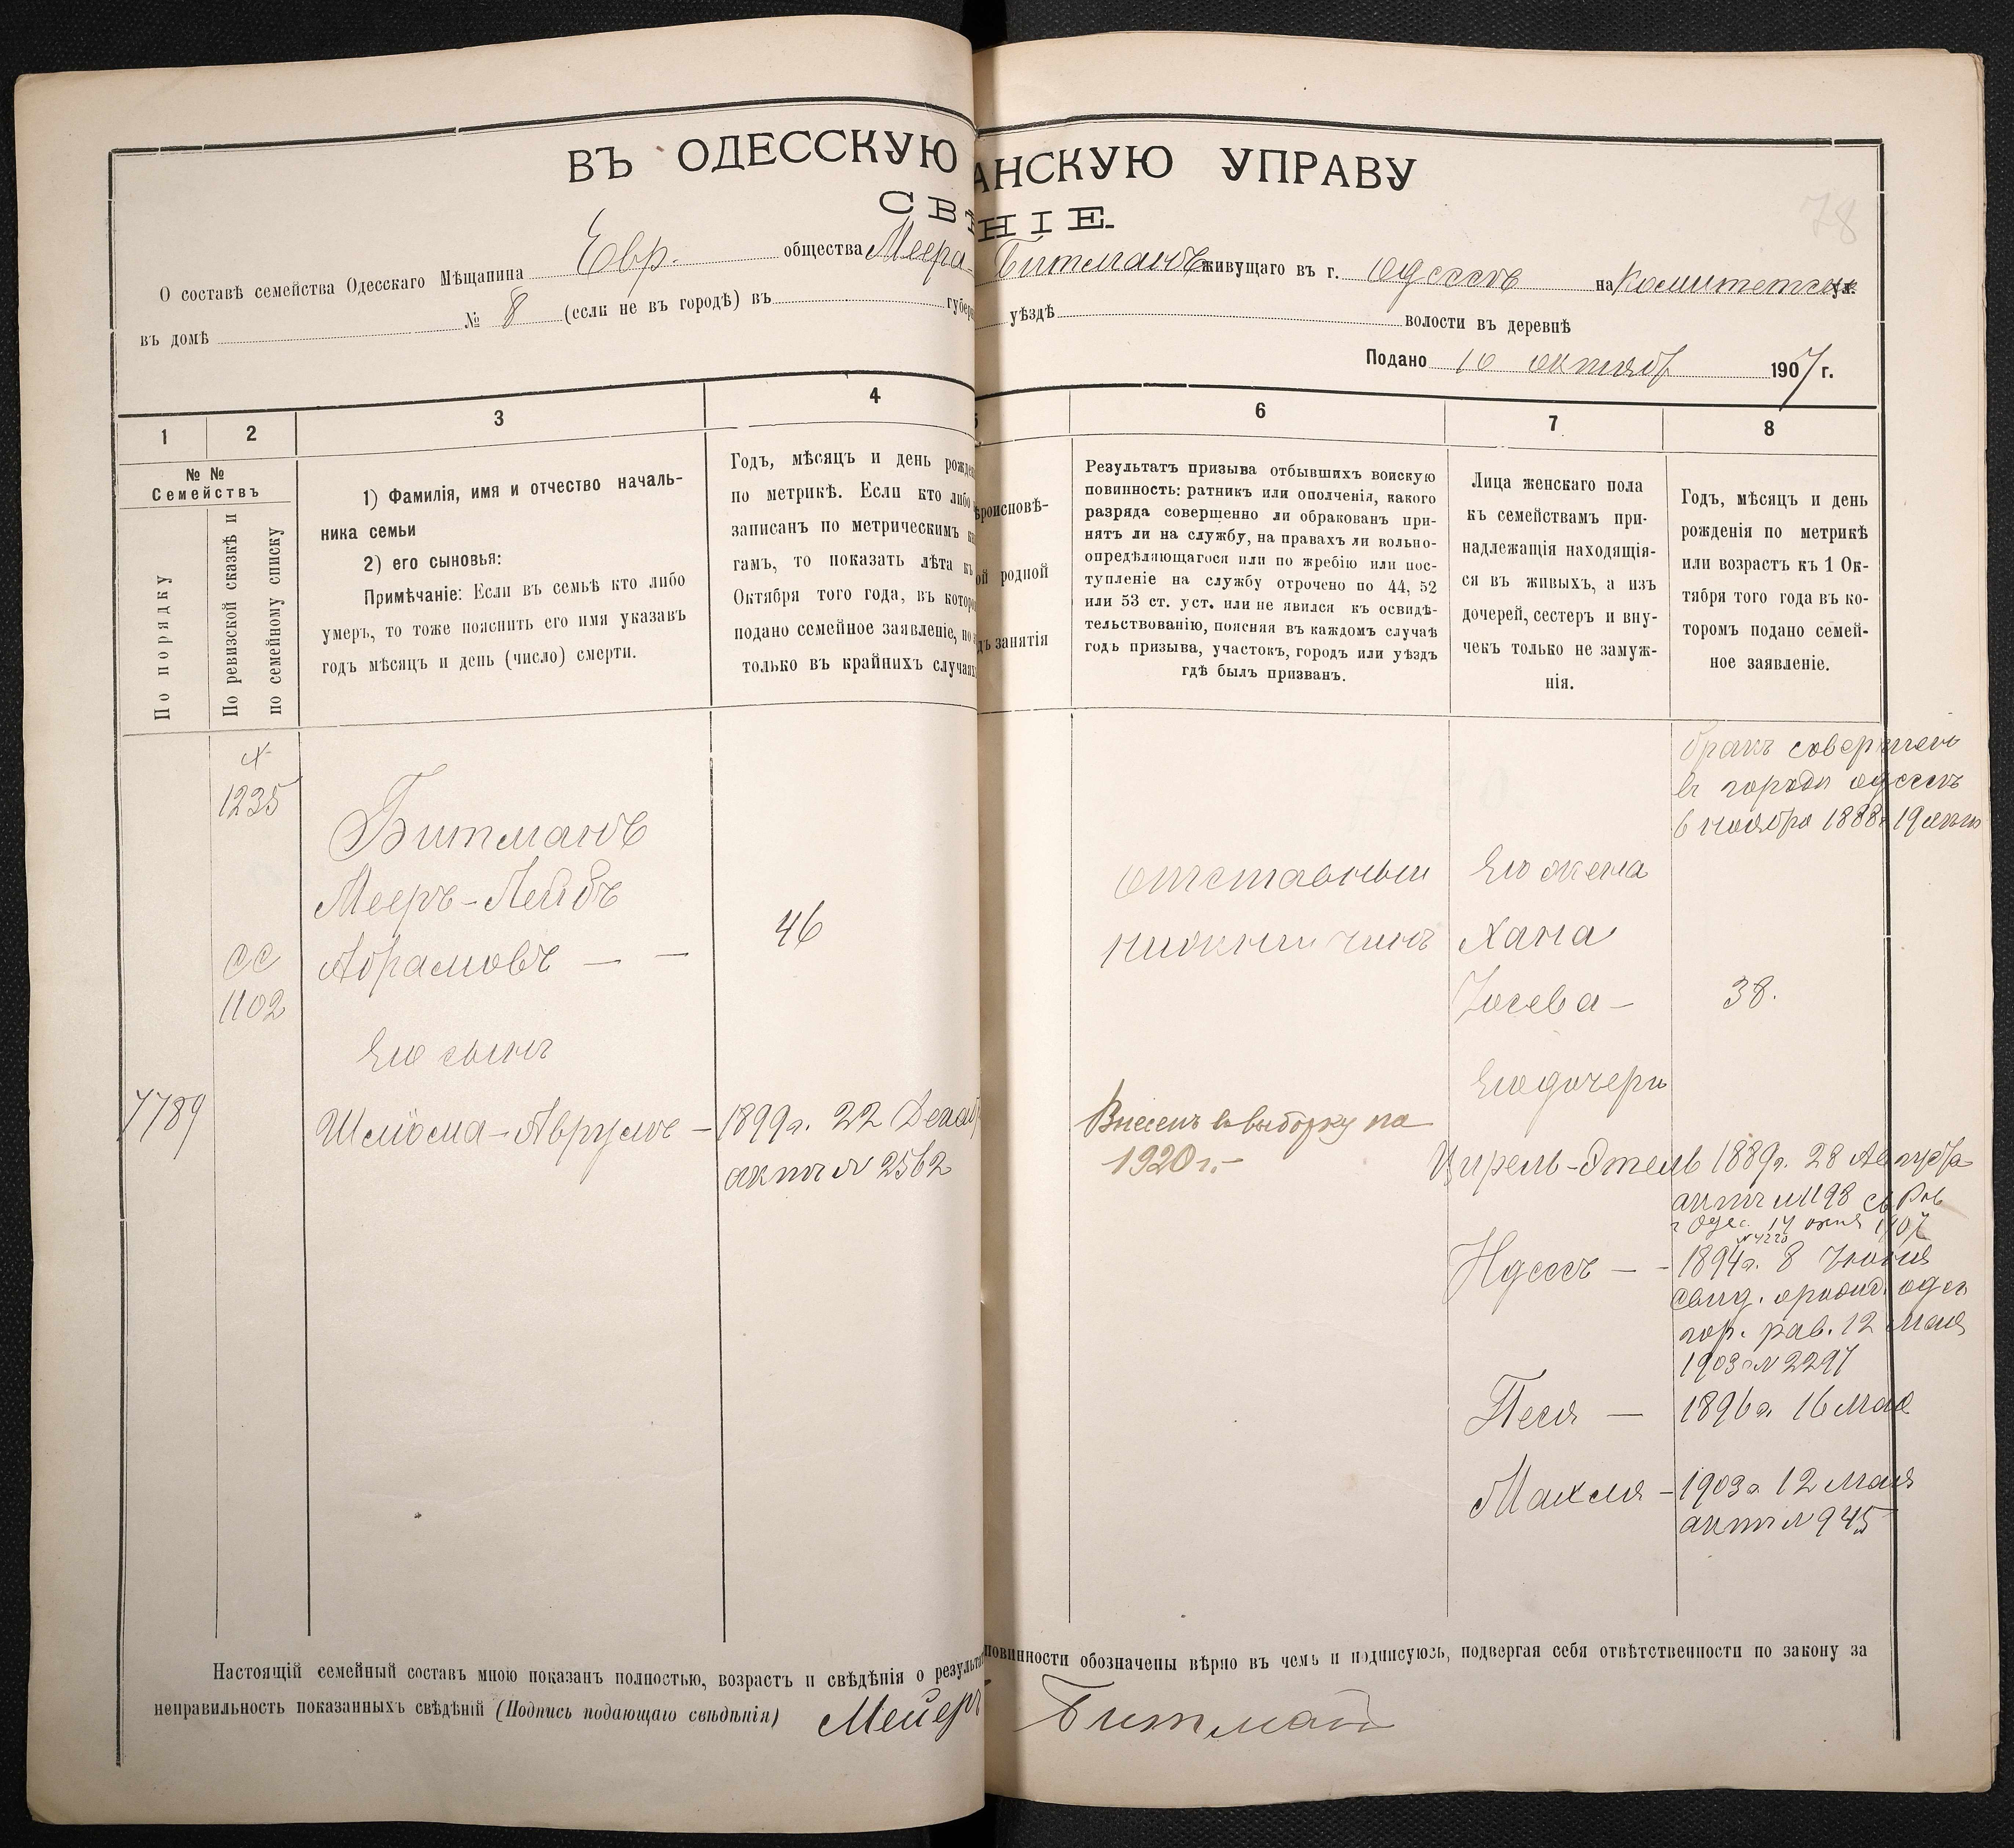 ВЪ ОДЕССКУЮ АНСКУЮ УПРАВУ
СВѢ НІЕ.
78
О составѣ семейства Одесскаго Мѣщанина Евр. общества Меера Битманъ живущаго въ г. Одессѣ на Комитетск ул.
въ домѣ № 8 (если не въ городѣ) въ губер уѣздѣ волости въ деревнѣ
Подано 10 октябр 1907 г.
1 2 3 4 5 6 7 8
№ № Семействъ
По порядку
По ревизской сказкѣ и
по семейному списку
1) Фамилія, имя и отчество началь-
ника семьи
2) его сыновья:
Примѣчаніе: Если въ семьѣ кто либо
умеръ, то тоже пояснить его имя указавъ
годъ мѣсяцъ и день (число) смерти.
Годъ, мѣсяцъ и день рожде
по метрикѣ. Если кто либо
записанъ по метрическимъ кн
гамъ, то показать лѣта къ
Октября того года, въ которо
подано семейное заявленіе, но
только въ крайнихъ случаях
ѣроисповѣ-
ой родной
дъ занятія
Результатъ призыва отбывшихъ воискую
повинность: ратникъ или ополченія, какого
разряда совершенно ли обракованъ при-
нятъ ли на службу, на правахъ ли вольно-
опредѣляющагося или по жребію или пос-
тупленіе на службу отрочено по 44, 52
или 53 ст. уст. или не явился къ освидѣ-
тельствованію, поясняя въ каждомъ случаѣ
годъ призыва, участокъ, городъ или уѣздъ
гдѣ былъ призванъ.
Лица женскаго пола
къ семействамъ при-
надлежащія находящія-
ся въ живыхъ, а изъ
дочерей, сестеръ и вну-
чекъ только не замуж-
нія.
Годъ, мѣсяцъ и день
рожденія по метрикѣ
или возрастъ къ 1 Ок-
тября того года въ ко-
торомъ подано семей-
ное заявленіе.
1235
Битманъ
Мееръ-Лейбъ
Абрамовъ — —
46
сс
1102
Его сынъ
7789
Шлиома-Аврумъ —
1899г. 22 Декаб
актъ № 2562
отставный
нижний чинъ
Внесенъ въ выборку на
1920 г.-
Его жена
Хана
Іосева —
38.
бракъ совершенъ
въ городѣ одессѣ
6 ноября 1888г
Его дочери
Цирель-Этель 1889г. 28 Августа
актъ №1198
г Одес. 14 1907
№ 4220
Идесъ — - 1894г. 8 Іюня
свид. одес
гор. рав. 12 мая
1903г № 2297
Песя — 1896г. 16 мая
Махля - 1903г. 12 мая
актъ № 945
Настоящій семейный составъ мною показанъ полностью, возрастъ и свѣдѣнія о результат повинности обозначены вѣрно въ чемъ и подписуюсь, подвергая себя отвѣтственности по закону за
неправильность показанныхъ свѣдѣній (Подпись подающаго свѣдѣнія) Мейеръ Битман